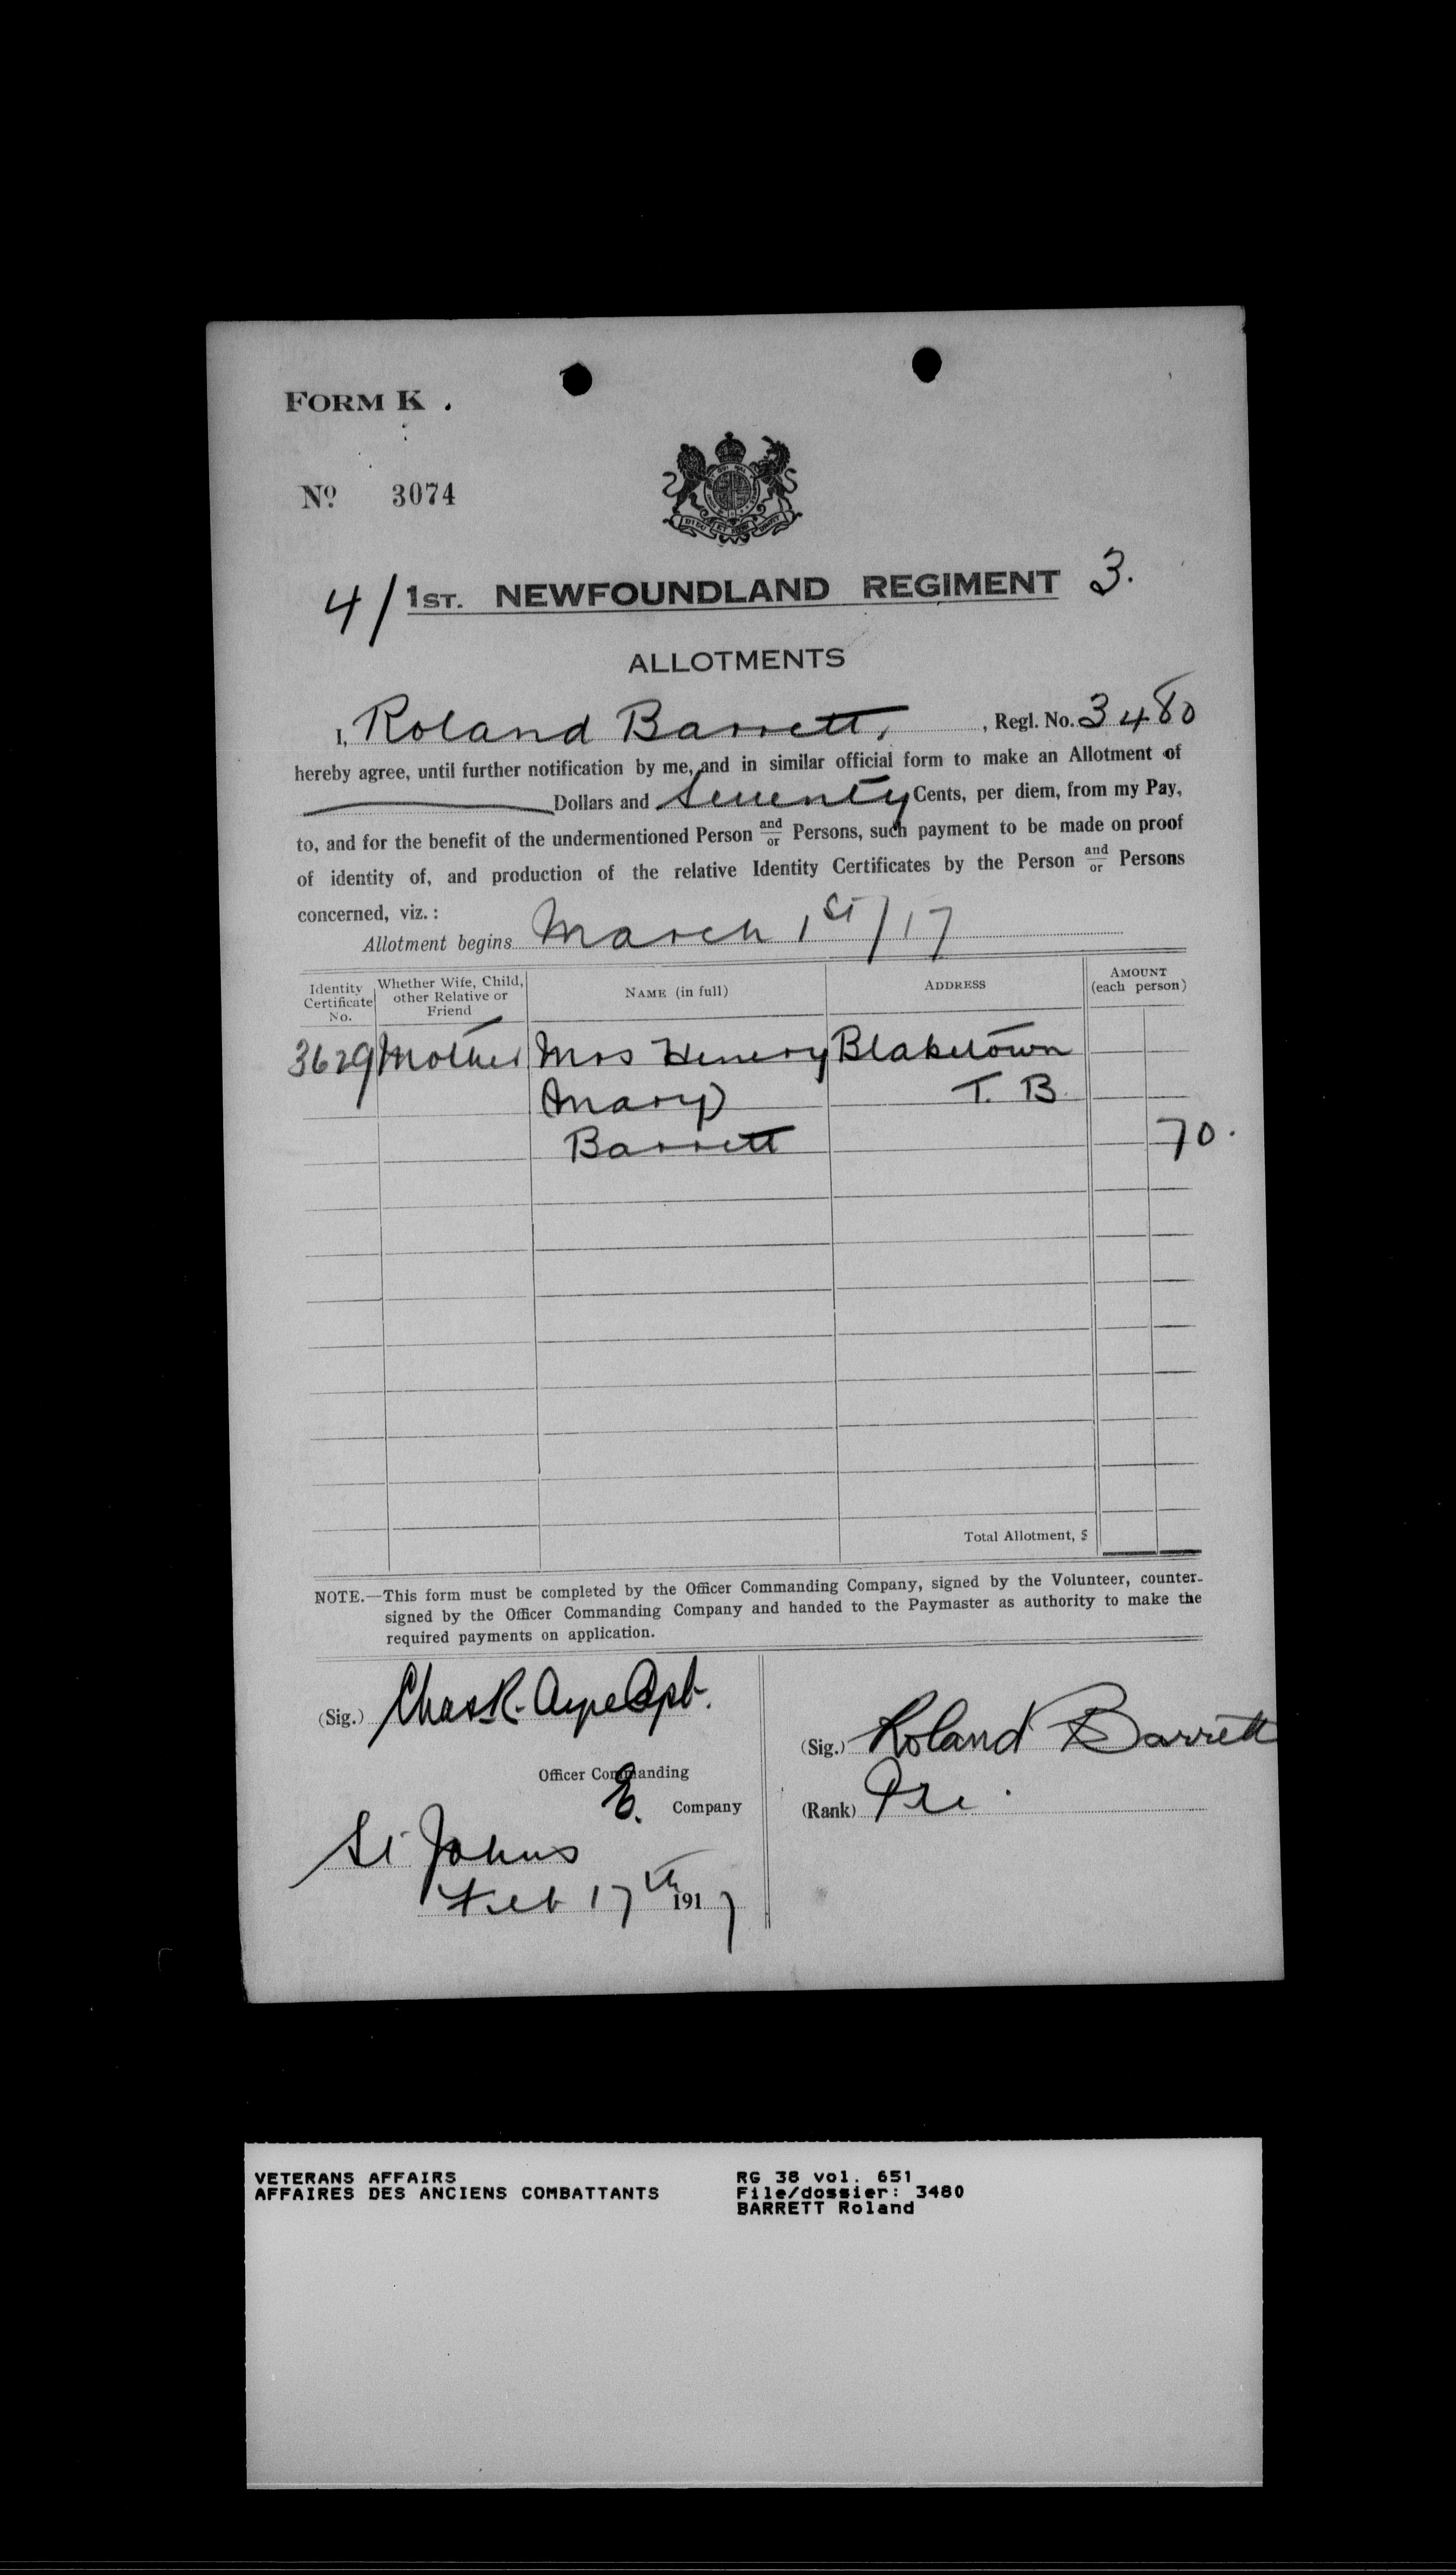 FORM K.
Nº 3074
4/ 1ST. NEWFOUNDLAND REGIMENT 3.
ALLOTMENTS
I, Roland Barrett, , Regl. No. 3480
hereby agree, until further notification by me, and in similar official form to make an Allotment of
Dollars and Seventy Cents, per diem, from my Pay,
to, and for the benefit of the undermentioned Person and/or Persons, such payment to be made on proof
of identity of, and production of the relative Identity Certificates by the Person and/or Persons
concerned, viz.:
Allotment begins March 1st/17
Identity Certificate No. Whether Wife, Child, other Relative or Friend NAME (in full) ADDRESS AMOUNT (each person)
3629 Mother Mrs Henery Blaketown
Mary T. B.
Barrett 70.
Total Allotment, $
NOTE.—This form must be completed by the Officer Commanding Company, signed by the Volunteer, counter-
signed by the Officer Commanding Company and handed to the Paymaster as authority to make the
required payments on application.
(Sig.) Chas R. Ayre Capt.
Officer Commanding
E. Company
St Johns
Feb 17th 1917
(Sig.) Roland Barrett
(Rank) Pte.
VETERANS AFFAIRS
AFFAIRES DES ANCIENS COMBATTANTS
RG 38 vol. 651
File/dossier: 3480
BARRETT Roland